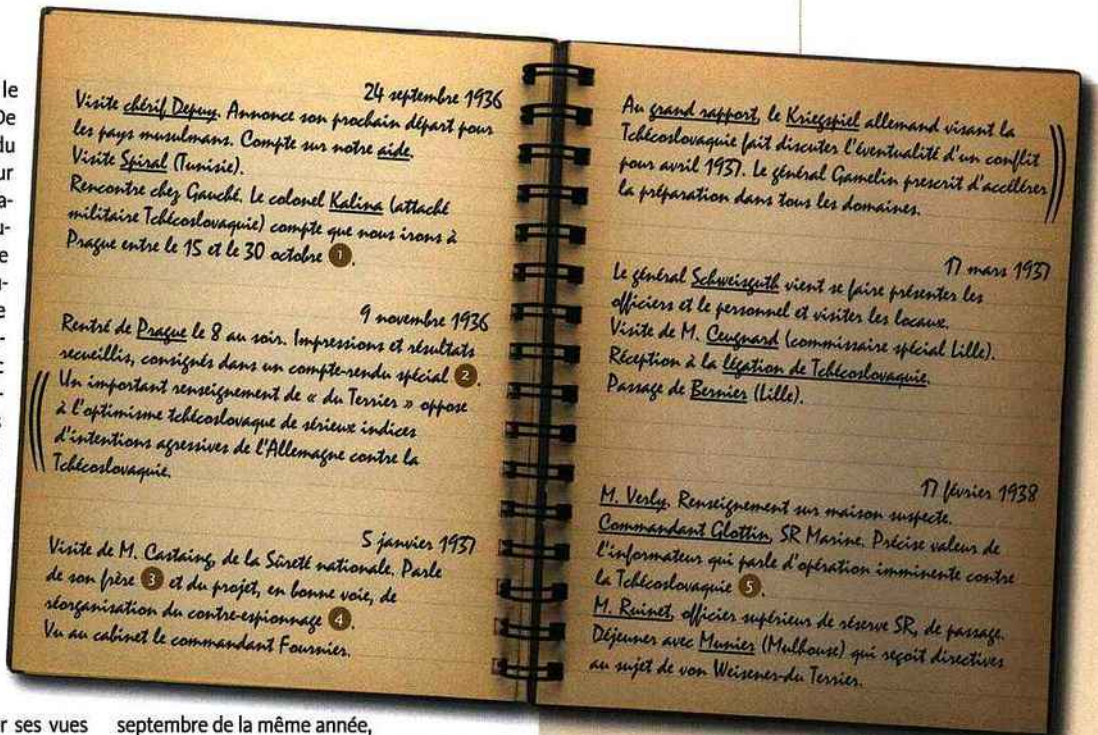 le
De
du
ur
a-
u-
e
u-
e
-
c
-
s
24 septembre 1936
Visite chérif Depuy. Annonce son prochain départ pour
les pays musulmans. Compte sur notre aide.
Visite Spiral (Tunisie).
Rencontre chez Gauché. Le colonel Kalina (attaché
militaire Tchécoslovaquie) compte que nous irons à
Prague entre le 15 et le 30 octobre 1.
9 novembre 1936
Rentré de Prague le 8 au soir. Impressions et résultats
recueillis, consignés dans un compte-rendu spécial 2.
Un important renseignement de « du Terrier » oppose
à l'optimisme tchécoslovaque de sérieux indices
d'intentions agressives de l'Allemagne contre la
Tchécoslovaquie.
5 janvier 1937
Visite de M. Castaing, de la Sûreté nationale. Parle
de son frère 3 et du projet, en bonne voie, de
réorganisation du contre-espionnage 4.
Vu au cabinet le commandant Fournier.
Au grand rapport, le Kriegspiel allemand visant la
Tchécoslovaquie fait discuter l'éventualité d'un conflit
pour avril 1937. Le général Gamelin prescrit d'accélérer
la préparation dans tous les domaines.
17 mars 1937
Le général Schweisguth vient se faire présenter les
officiers et le personnel et visiter les locaux.
Visite de M. Ceugnard (commissaire spécial Lille).
Réception à la légation de Tchécoslovaquie.
Passage de Bernier (Lille).
17 février 1938
M. Verly. Renseignement sur maison suspecte.
Commandant Glottin, SR Marine. Précise valeur de
l'informateur qui parle d'opération imminente contre
la Tchécoslovaquie 5.
M. Ruinet, officier supérieur de réserve SR, de passage.
Déjeuner avec Munier (Mulhouse) qui reçoit directives
au sujet de von Weisener-du Terrier.
r ses vues
septembre de la même année,